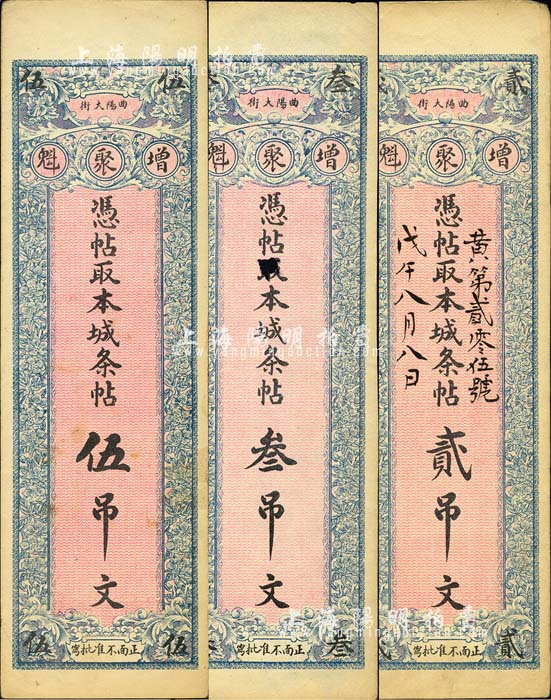 伍 伍
曲陽大街
增聚魁
憑帖取本城条帖
伍吊文
正面不准批寫
伍 伍
叁
曲陽大街
增聚魁
憑帖取本城条帖
叁吊文
正面不准批寫
叁
貳
曲陽大街
增聚魁
黄八第貳零伍號
憑帖取本城条帖
貳吊文
戊午八月八日
正面不准批寫
貳
上海陽明拍賣
上海陽明拍賣
www.yangmingauction.com
上海陽明拍賣